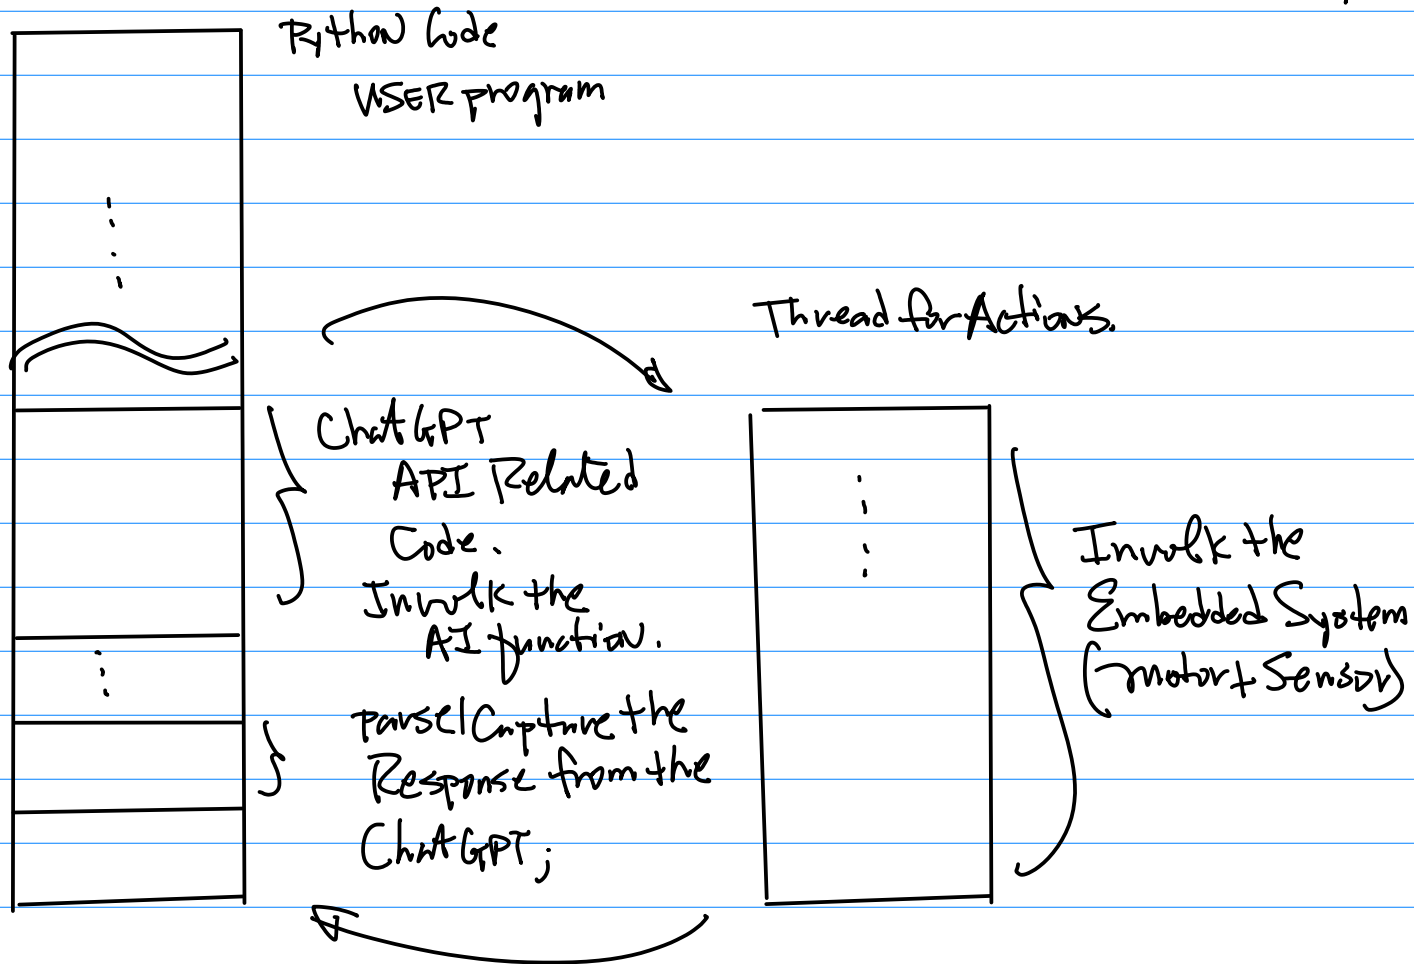 Python Code
USER program
Thread for Actions.
ChatGPT
API Related
Code.
Involk the
AI function.
parse/Capture the
Response from the
ChatGPT;
Involk the
Embedded System
(motor + Sensor)